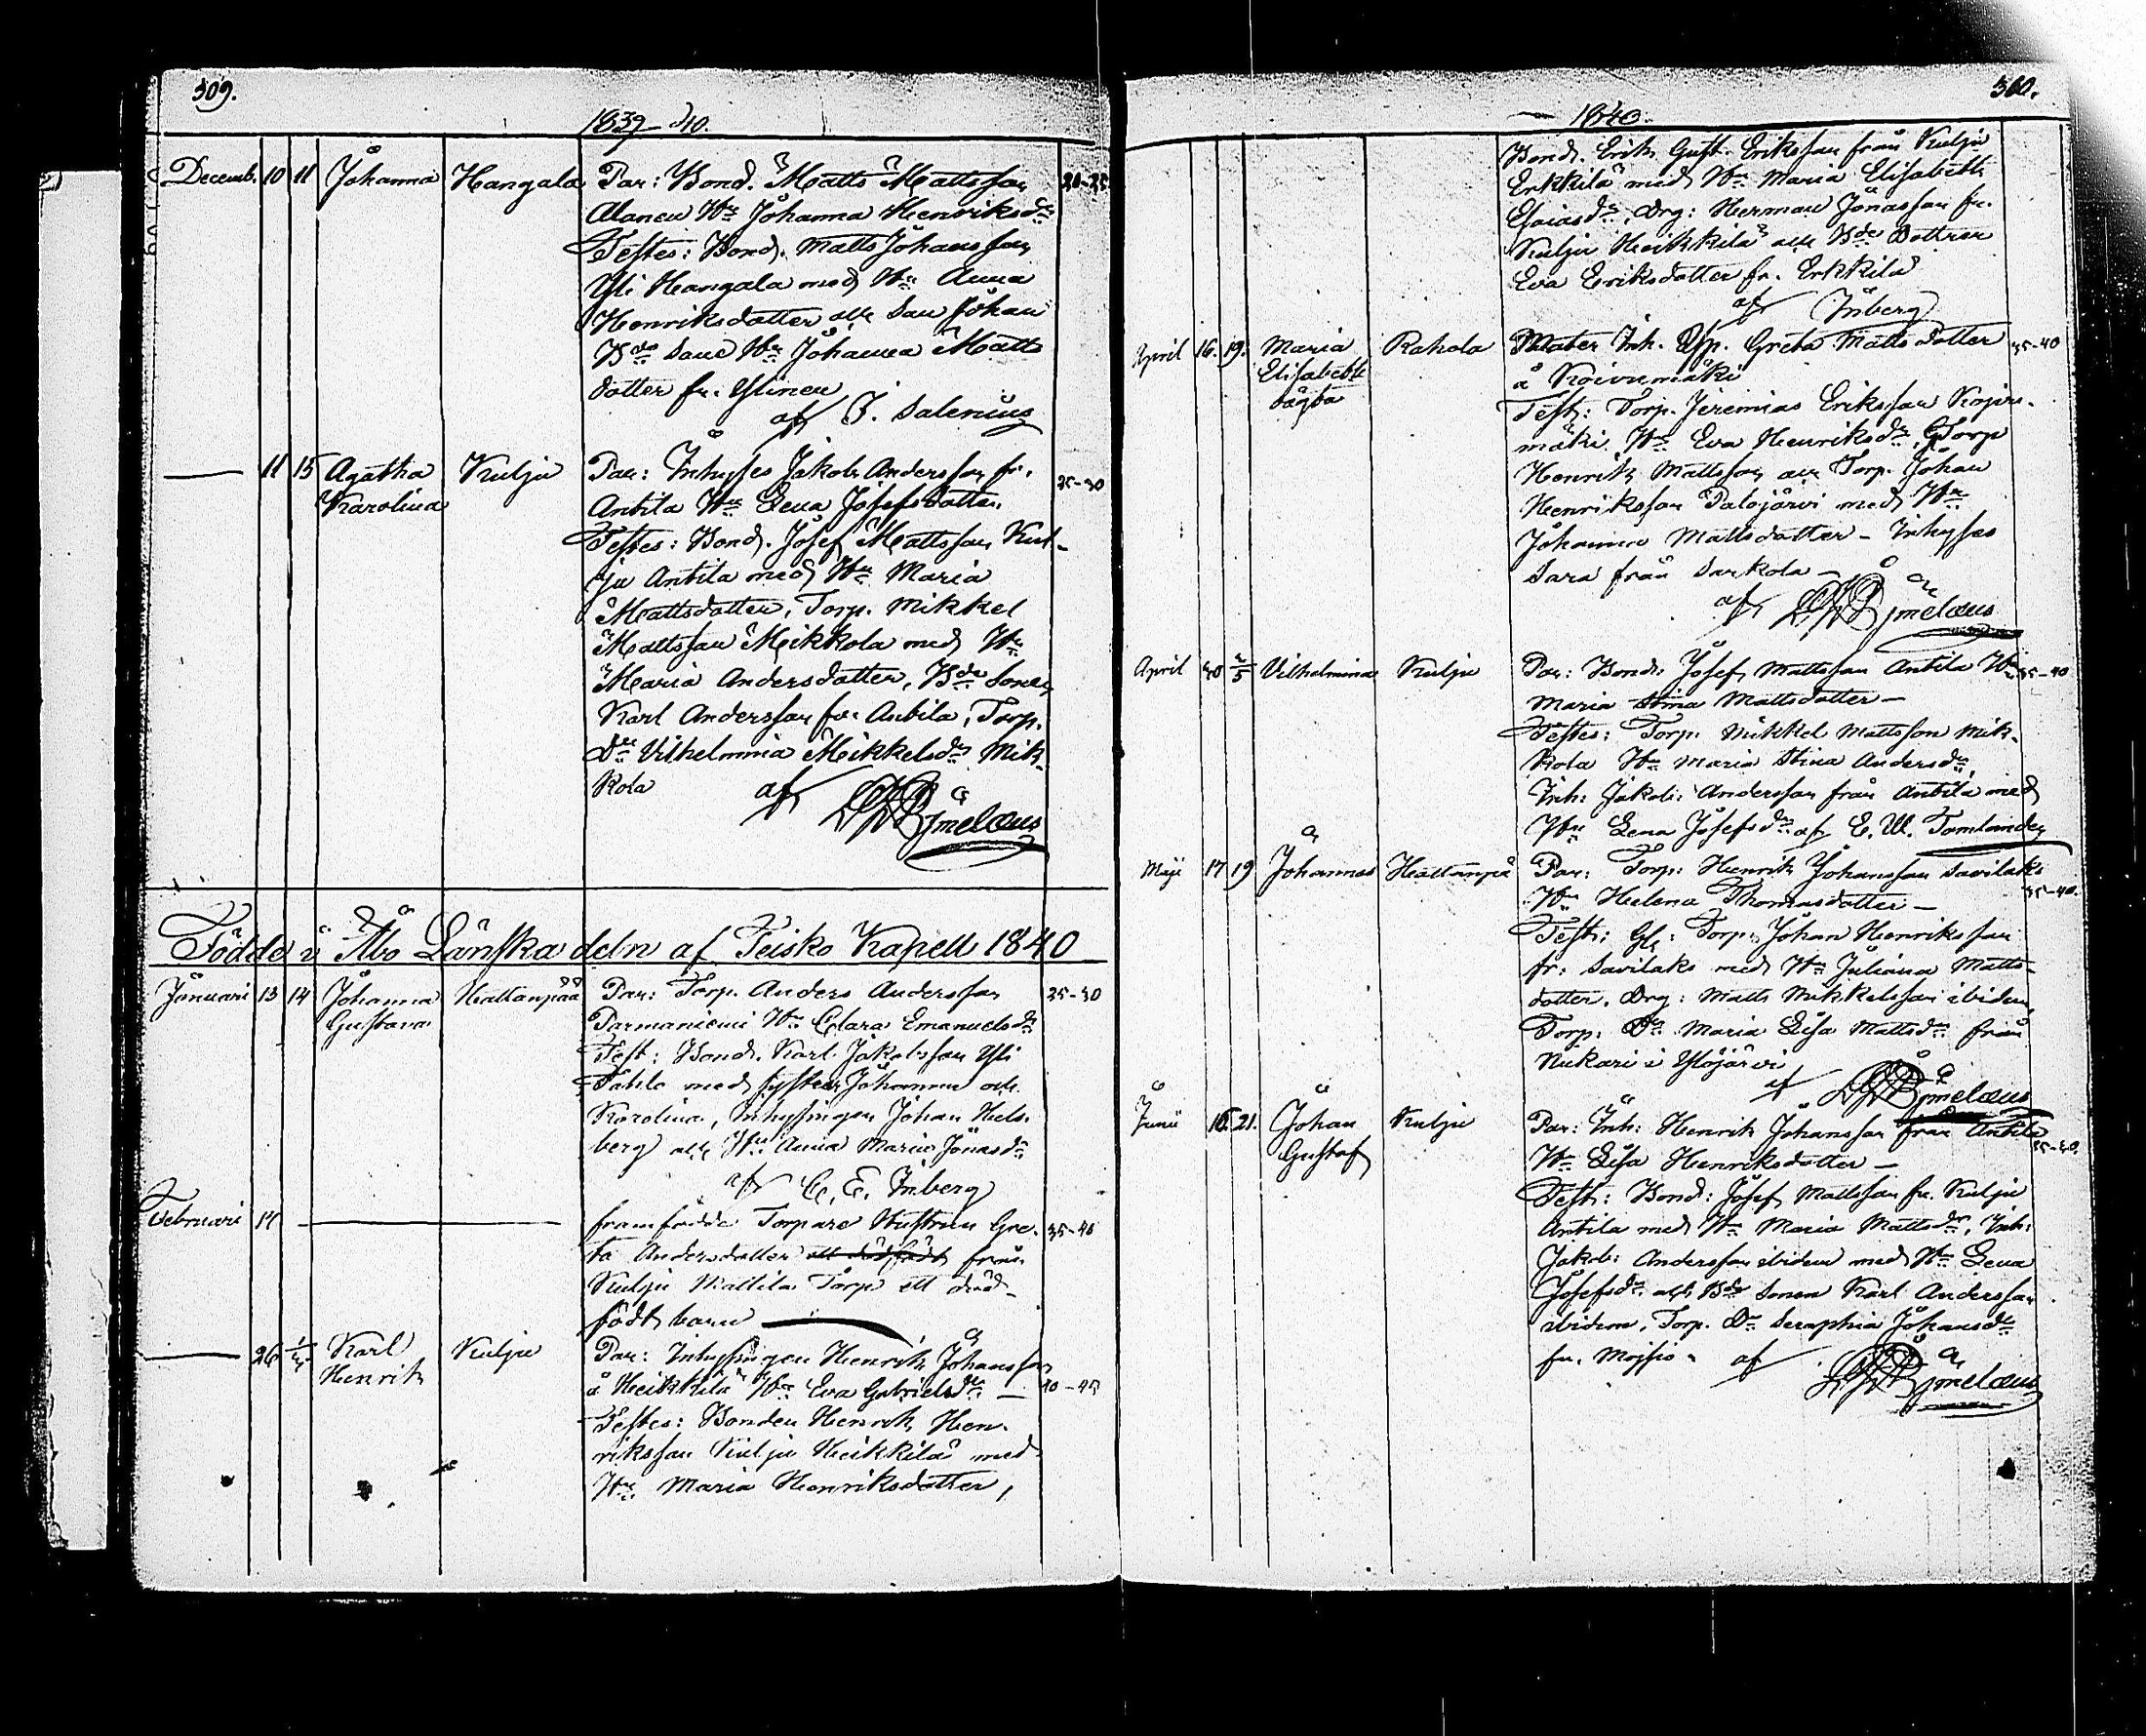 309.
1839-40.
Decemb. 10 11 Johanna Hangala Par: Bond. Matts Mattsson 20-25
Alanen Hu Johanna Henriksdr
Testes: Bond. Matts Johansson
Yli Hangala med Hu Anna
Henriksdotter och Son Johan
Bde Sone Hu Johanna Matts
dotter fr. Ylinen
af J. Salenius
11 15 Agatha Kulju Par: Inhyses Jakob Andersson fr. 25-30
Karolina Antila Hu Lena Josefsdotter.
Testes: Bond. Josef Mattsson Kul-
ju Antila med Hu Maria
Mattsdotter, Torp. Mikkel
Mattsson Mikkola med Hu
Maria Andersdotter, Bde Sonen
Karl Andersson fr. Antila, Torp.
Dr Vilhelmina Mikkelsdr Mik-
kola af
Födde i Åbo Länska deln af Teisko Kapell 1840
Januari 13 14 Johanna Hattanpää Par: Torp. Anders Andersson 25-30
Gustava Parmaniemi Hu Clara Emanuelsdr
Test: Bond. Karl Jakobsson Yli
med syster Johanna och
Karolina, Inhysingen Johan Hels-
berg och Hu Anna Maria Jonasdr
af C. E. Inberg
Februari 14 framfödde Torpare Hustrun Gre- 35-40
ta Andersdotter ett dödfödt från
Kulju Mattila Torp ett död-
födt barn
26 1/3 Karl Kulju Par: Inhysingen Henrik Johansson
Henrik å Heikkilä Hu Eva Gabrielsdr 40-45
Testes: Bonden Henrik Hen-
riksson Kulju Heikkilä med
Hu Maria Henriksdotter,
360.
1840.
Bond. Erik Gust. Eriksson från Kulju
Erkkilä med Hu Maria Elisabeth
Esaiasdr, Drg: Herman Jonasson fr.
Kulju Heikkilä och Bde Dottren
Eva Eriksdotter fr. Erkkilä
af Inberg
April 16. 19. Maria Rahola Mater Inh. Greta Matts dotter 35-40
Elisabeth å Koivumäki
oägta Test: Torp. Jeremias Eriksson Koivu-
mäki Hu Eva Henriksdr, Torp
Henrik Mattsson och Torp. Johan
Henriksson Palojärvi med Hu
Johanna Mattsdotter - Inhyses
Sara från Sarkola -
af
April 30 2/5 Vilhelmina Kulju Par: Bond: Josef Mattsson Antila Hu 35-40
Maria Stina Mattsdotter -
Testes: Torp. Mikkel Mattsson Mik-
kola Hu Maria Stina Andersdr,
Inh: Jakob: Andersson från Antila med
Hu Lena Josefsdr af E. W. Tomlander
Maji 17 19 Johannes Hattanpä Par: Torp: Henrik Johansson Savilaks 35-40.
Hu Helena Thomasdotter -
Test: Gl: Torp: Johan Henriksson
fr: Savilaks med Hu Juliana Matts-
dotter, Drg: Matts Mikkelsson ibidem,
Torp. Dr Maria Lisa Mattsdr från
Mukari i Ylöjärvi
af
Junii 16. 21. Johan Kulju Par: Inh: Henrik Johansson från Antila
Gustaf Hu Lisa Henriksdotter -
Test: Bond: Josef Mattsson fr. Kulju
Antila med Hu Maria Mattsdr, Inh:
Jakob: Andersson ibidem med Hu Lena
Josefsdr och Bde Sonen Karl Andersson
ibidem, Torp. Dr Seraphia Johansdr
fr. Moisio - af